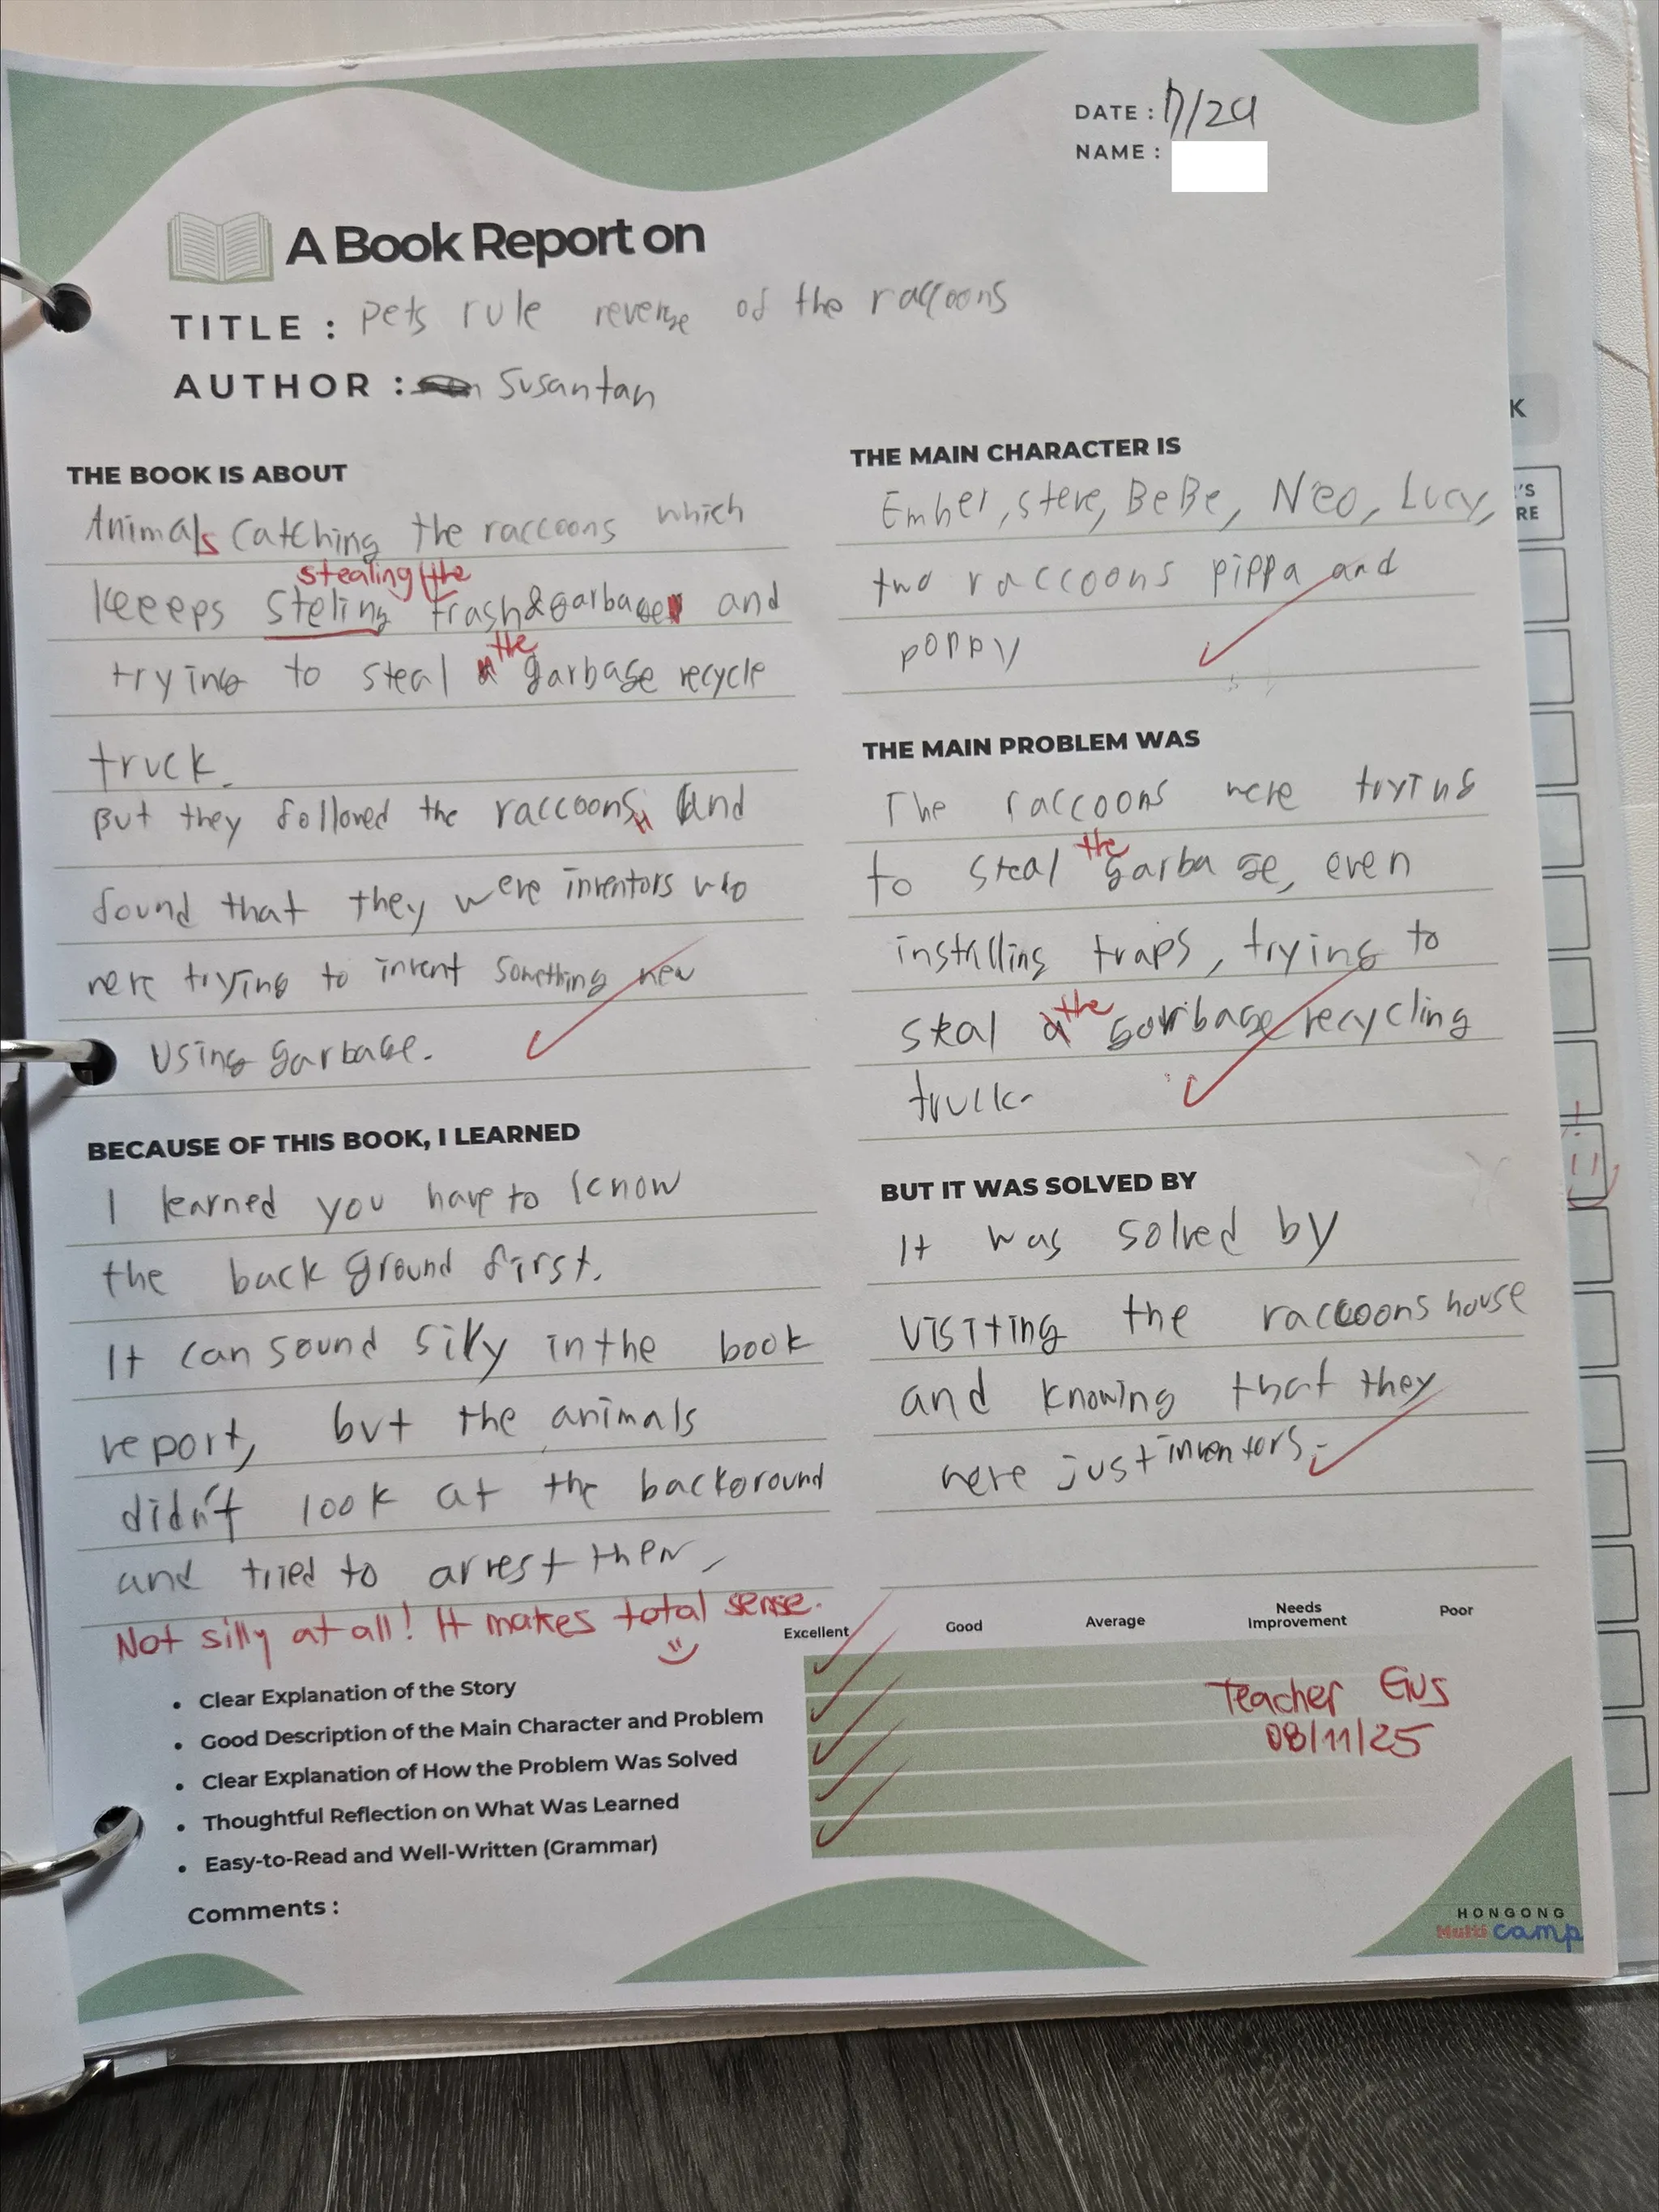 DATE : 7/29
NAME :
A Book Report on
TITLE : pets rule revenge of the raccoons
AUTHOR : Susan tan
THE BOOK IS ABOUT
Animals catching the raccoons which
stealing the
keeeps steling trash&garbage and
the
trying to steal garbage recycle
truck.
But they followed the raccoons, and
found that they were inventors who
were trying to invent something new
using garbage.
BECAUSE OF THIS BOOK, I LEARNED
I learned you have to know
the back ground first.
It can sound silly in the book
report, but the animals
didn't look at the background
and tried to arrest them.
Not silly at all! It makes total sense.
THE MAIN CHARACTER IS
Ember, steve, BeBe, Neo, Lucy,
two raccoons pippa and
poppy
THE MAIN PROBLEM WAS
The raccoons were trying
the
to steal garbage, even
installing traps, trying to
steal a the garbage recycling
truck.
BUT IT WAS SOLVED BY
It was solved by
visiting the raccoons house
and knowing that they
were just inventors.
Excellent Good Average Needs Improvement Poor
• Clear Explanation of the Story
• Good Description of the Main Character and Problem
• Clear Explanation of How the Problem Was Solved
• Thoughtful Reflection on What Was Learned
• Easy-to-Read and Well-Written (Grammar)
Teacher Gus
08/11/25
Comments :
HONGONG
Multi camp
K
'S
RE